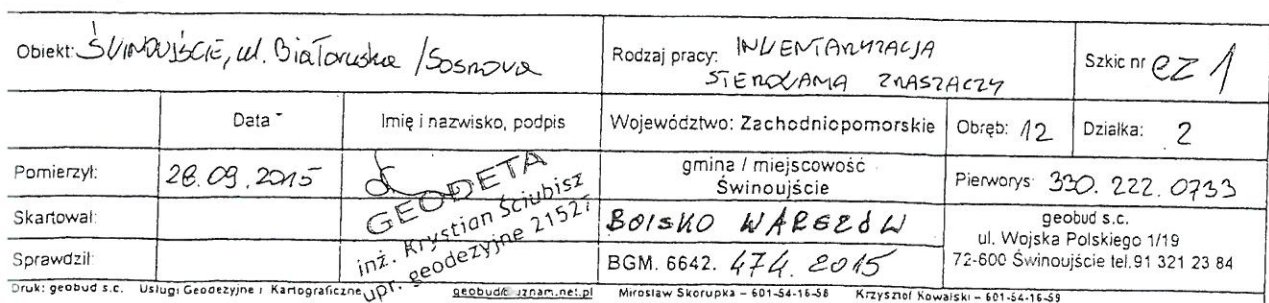 Obiekt: ŚWINOUJŚCIE, ul. Białoruska / Sosnowa
Rodzaj pracy: INWENTARYZACJA
STEROWANIA ZRASZACZY
Szkic nr ez 1
Data
Imię i nazwisko, podpis
Województwo: Zachodniopomorskie
Obręb: 12
Działka: 2
Pomierzył: 28.09.2015
gmina / miejscowość
Świnoujście
Pierworys 330.222.0733
GEODETA
inż. Krystian Ściubisz
upr. geodezyjne 21527
Skartował:
BOISKO WARSZÓW
geobud s.c.
ul. Wojska Polskiego 1/19
72-600 Świnoujście tel.91 321 23 84
Sprawdził:
BGM. 6642. 474. 2015
Druk: geobud s.c. Usługi Geodezyjne i Kartograficzne geobud@uznam.net.pl Mirosław Skorupka – 601-54-16-58 Krzysztof Kowalski – 601-54-16-59